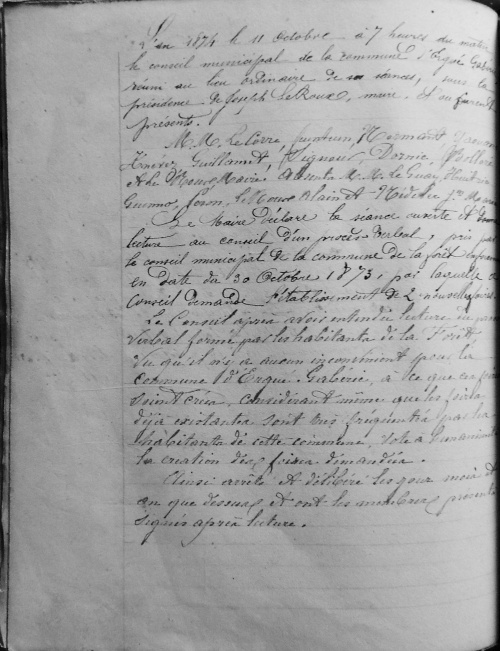 L'an 1874 le 11 octobre à 7 heures du matin
le conseil municipal de la commune d'Ergué Gab
réuni au lieu ordinaire de ses séances, sous la
présidence de Joseph Le Roux, maire. Et on furent
présents.
M.M. Le Corre,
Guillamet, Signour, Dornic,
Et Le Roux Maire. Absents M.M. Le Guay,
Guenno, Feron, Le Roux Alain et Nédélec
Le Maire déclare la séance ouverte et donne
lecture au conseil d'un procès verbal, pris par
le conseil municipal de la commune de la forêt
en date du 30 Octobre 1873, par laquelle ce
Conseil demande l'établissement de 2 nouvelles foires
Le Conseil après avoir entendu lecture du procès
verbal formé par les habitants de la Forêt
Vu qu'il n'y a aucun inconvénient pour la
commune d'Ergué Gabéric, à ce que ces foires
soient créées, considérant même que les foires
déjà existantes sont très fréquentés par les
habitants de cette commune, vote à l'unanimité
la création des foires demandées.
Ainsi arrêté et délibéré les jour mois et
an que dessus et ont les membres présents
signés après lecture.